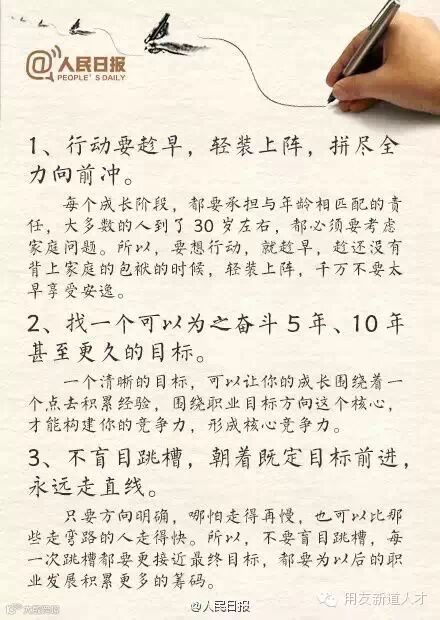 @人民日报
PEOPLE'S DAILY
1、行动要趁早，轻装上阵，拼尽全
力向前冲。
每个成长阶段，都要承担与年龄相匹配的责
任，大多数的人到了30岁左右，都必须要考虑
家庭问题。所以，要想行动，就趁早，趁还没有
背上家庭的包袱的时候，轻装上阵，千万不要太
早享受安逸。
2、找一个可以为之奋斗5年、10年
甚至更久的目标。
一个清晰的目标，可以让你的成长围绕着一
个点去积累经验，围绕职业目标方向这个核心，
才能构建你的竞争力，形成核心竞争力。
3、不盲目跳槽，朝着既定目标前进，
永远走直线。
只要方向明确，哪怕走得再慢，也可以比那
些走弯路的人走得快。所以，不要盲目跳槽，每
一次跳槽都要更接近最终目标，都要为以后的职
业发展积累更多的筹码。
@人民日报
用友新道人才